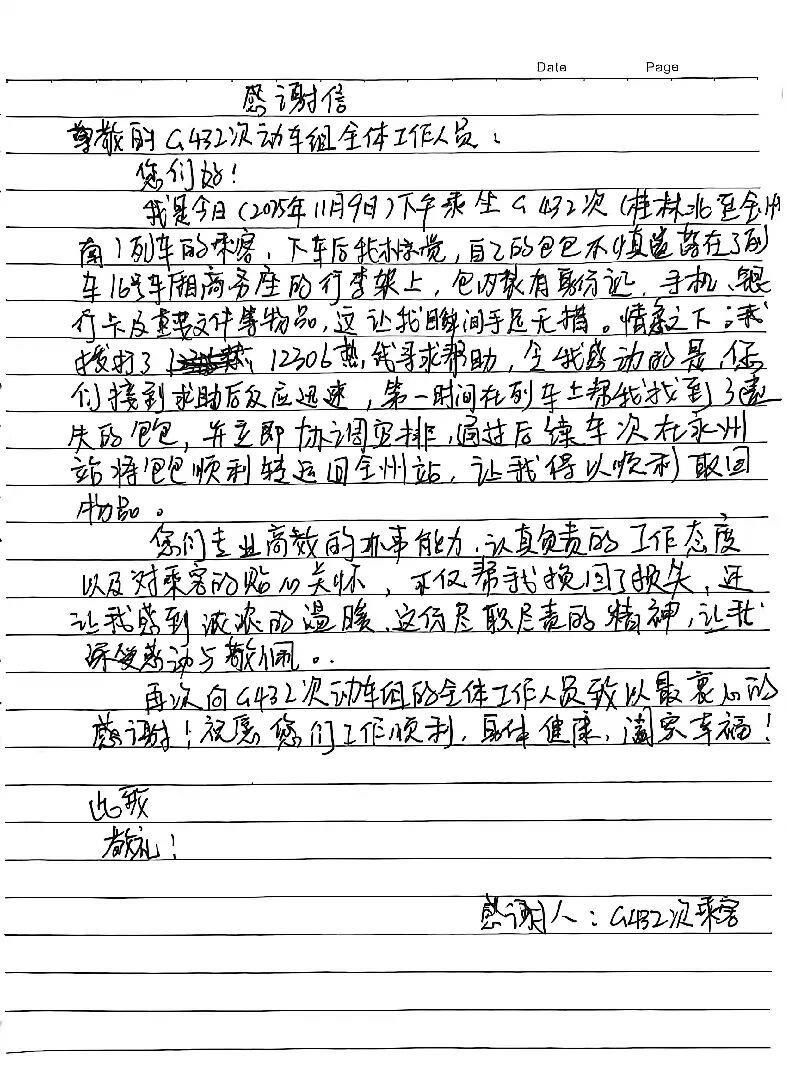 Date Page
感谢信
尊敬的G432次动车组全体工作人员：
您们好！
我是今日(2025年11月9日)下午乘坐G432次(桂林北至全州
南)列车的乘客，下车后我才惊觉，自己的包包不慎遗落在了列
车16号车厢商务座的行李架上，包内装有身份证、手机、银
行卡及重要文件等物品，这让我瞬间手足无措。情急之下，我
拨打了 12306热线寻求帮助，令我感动的是，您
们接到求助后反应迅速，第一时间在列车上帮我找到了遗
失的包包，并立即协调安排，通过后续车次在永州
站将包包顺利转运回全州站，让我得以顺利取回
物品。
您们专业高效的办事能力、认真负责的工作态度
以及对乘客的贴心关怀，不仅帮我挽回了损失，还
让我感到浓浓的温暖。这份尽职尽责的精神，让我
深受感动与敬佩。
再次向G432次动车组的全体工作人员致以最衷心的
感谢！祝愿您们工作顺利，身体健康，阖家幸福！
此致
敬礼！
感谢人：G432次乘客